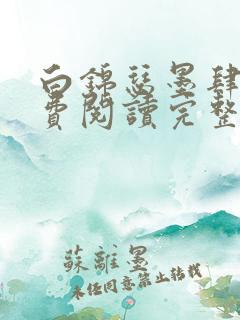 白錦瑟墨肆
費閱讀完整
蘇離墨
未經同意禁止轉載